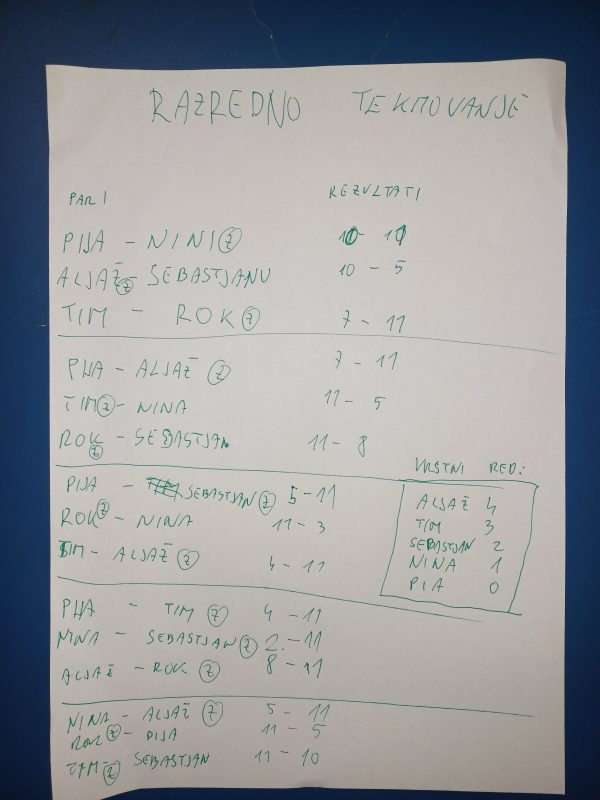 RAZREDNO TEKMOVANJE
PARI REZULTATI
PIJA - NINI Z 10 - 11
ALJAŽ Z - SEBASTJANU 10 - 5
TIM - ROK Z 7 - 11
PIJA - ALJAŽ Z 7 - 11
TIM Z - NINA 11 - 5
ROK Z - SEBASTJAN 11 - 8
PIJA - SEBASTJAN Z 5 - 11
ROK Z - NINA 11 - 3
TIM - ALJAŽ Z 4 - 11
PIJA - TIM Z 4 - 11
NINA - SEBASTJAN Z 2. - 11
ALJAŽ - ROK Z 8 - 11
NINA - ALJAŽ Z 5 - 11
ROK Z - PIJA 11 - 5
TIM - Z SEBASTJAN 11 - 10
VRSTNI RED:
ALJAŽ 4
TIM 3
SEBASTJAN 2
NINA 1
PIA 0